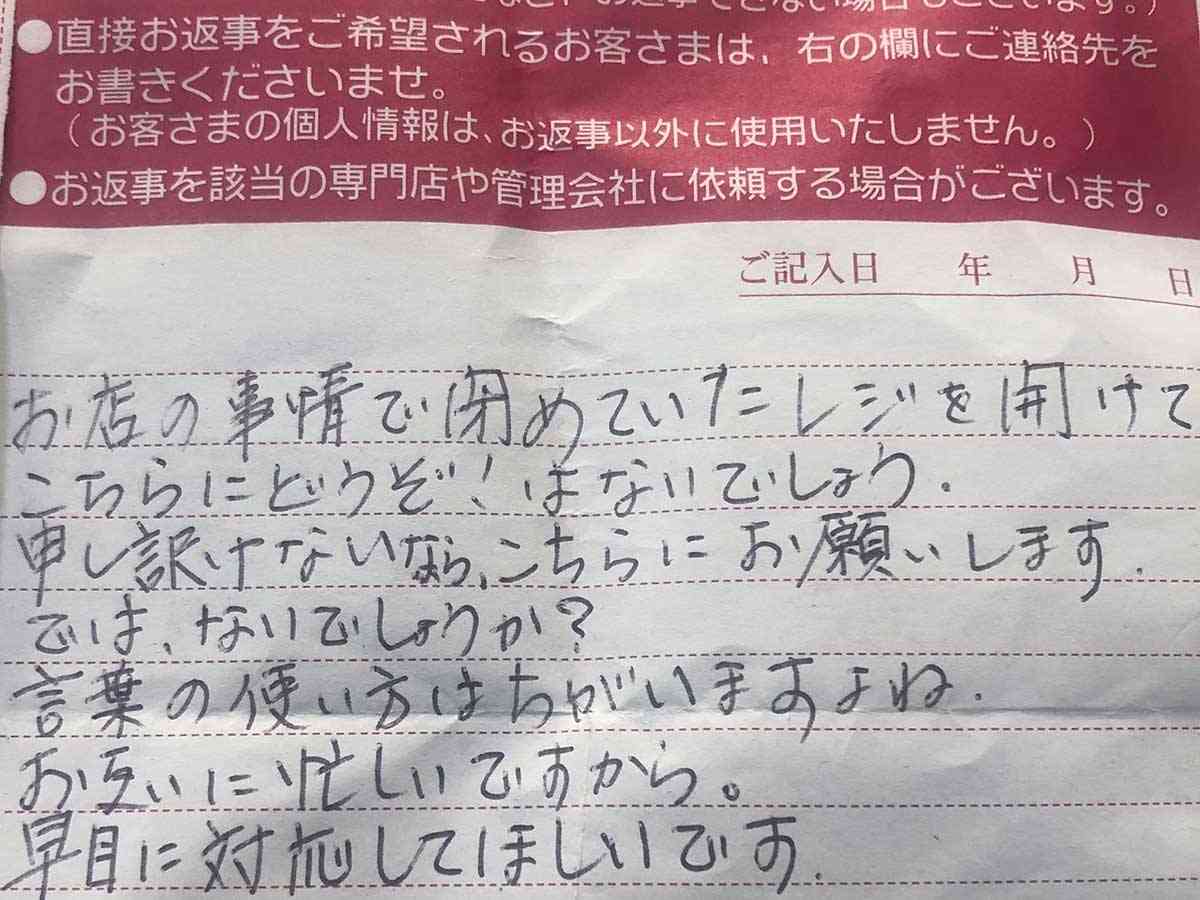 お返事できない場合もございます。)
●直接お返事をご希望されるお客さまは、右の欄にご連絡先を
お書きくださいませ。
(お客さまの個人情報は、お返事以外に使用いたしません。)
●お返事を該当の専門店や管理会社に依頼する場合がございます。
ご記入日 年 月 日
お店の事情で閉めていたレジを開けて
こちらにどうぞ!はないでしょう.
申し訳けないなら、こちらにお願いします.
では、ないでしょうか?
言葉の使い方はちがいますよね.
お互いに忙しいですから。
早目に対応してほしいです.